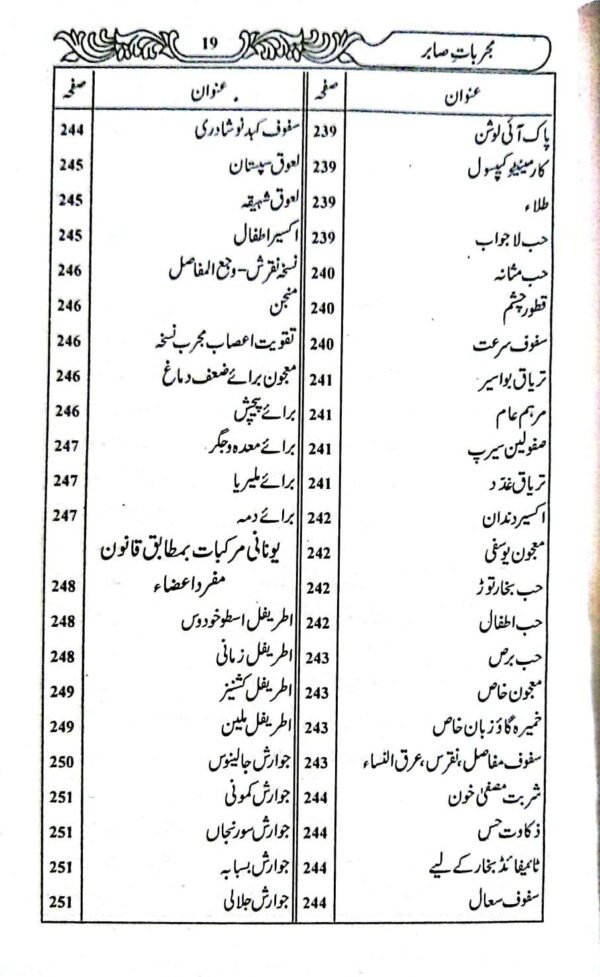 مجربات صابر
19
عنوان صفحہ
پاک آئی لوشن 239
کارمینیٹو کیپسول 239
طلاء 239
حب لاجواب 239
حب مثانہ 240
قطور چشم 240
سفوف سرعت 240
تریاق بواسیر 241
مرہم عام 241
صفولین سیرپ 241
تریاق غدد 241
اکسیر دندان 242
معجون یوسفی 242
حب بخار توڑ 242
حب اطفال 242
حب برص 243
معجون خاص 243
خمیرہ گاؤزبان خاص 243
سفوف مفاصل، نقرس، عرق النساء 243
شربت مصفیٰ خون 244
ذکاوت حس 244
ٹائیفائڈ بخار کے لیے 244
سفوف سعال 244
عنوان صفحہ
سفوف کبد نوشادری 244
لعوق سپستان 245
لعوق شہیقہ 245
اکسیر اطفال 245
نسخہ نقرش - وجع المفاصل 246
منجن 246
تقویت اعصاب مجرب نسخہ 246
معجون برائے ضعف دماغ 246
برائے پیچش 246
برائے معدہ و جگر 247
برائے ملیریا 247
برائے دمہ 247
یونانی مرکبات بمطابق قانون
مفرد اعضاء 248
اطریفل اسطوخودوس 248
اطریفل زمانی 248
اطریفل کشنیز 249
اطریفل ملین 249
جوارش جالینوس 250
جوارش کمونی 251
جوارش سورنجاں 251
جوارش بسباسہ 251
جوارش جلالی 251